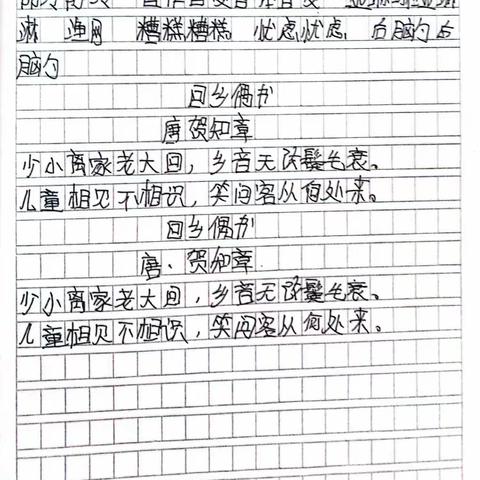 淋 渔网 糟糕糟糕 忧虑忧虑 后脑勺后
脑勺
回乡偶书
唐贺知章
少小离家老大回，乡音无改鬓毛衰。
儿童相见不相识，笑问客从何处来。
回乡偶书
唐、贺知章
少小离家老大回，乡音无改鬓毛衰。
儿童相见不相识，笑问客从何处来。